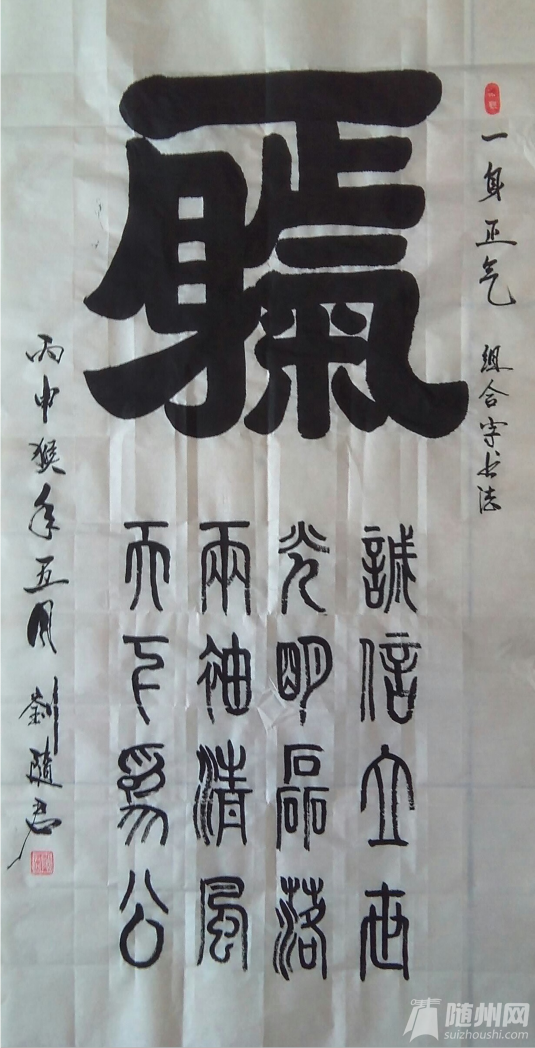 一身正气 组合字书法
誠信立世
光明磊落
兩袖清風
天下為公
丙申猴年五月 劉隨君
随州网
suizhoushi.com